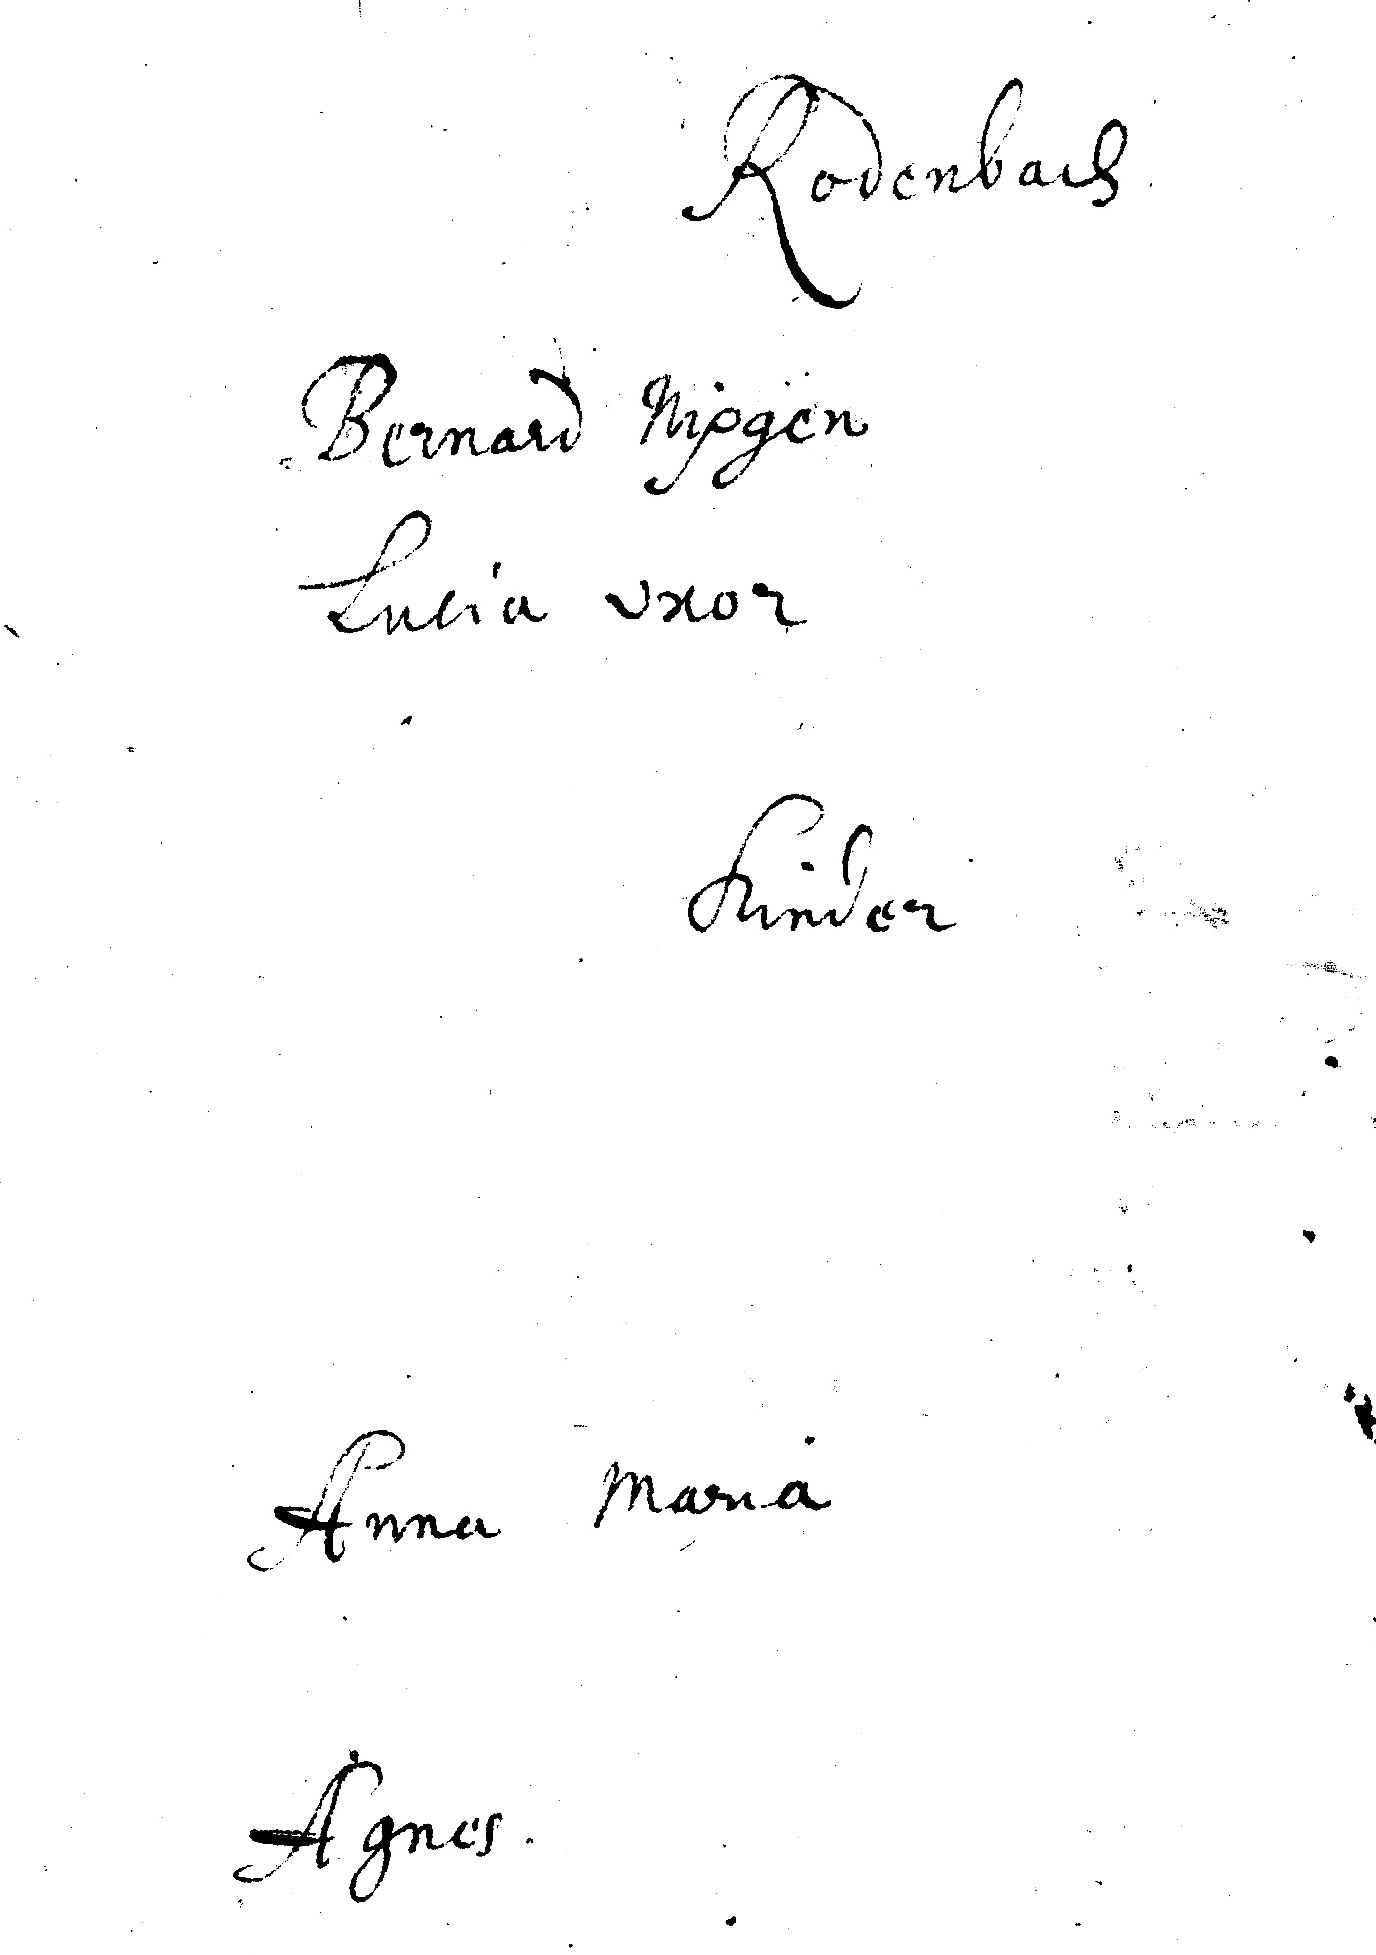 Rodenbach
Bernard Nipgen
Lucia uxor
Kinder
Anna Maria
Agnes.